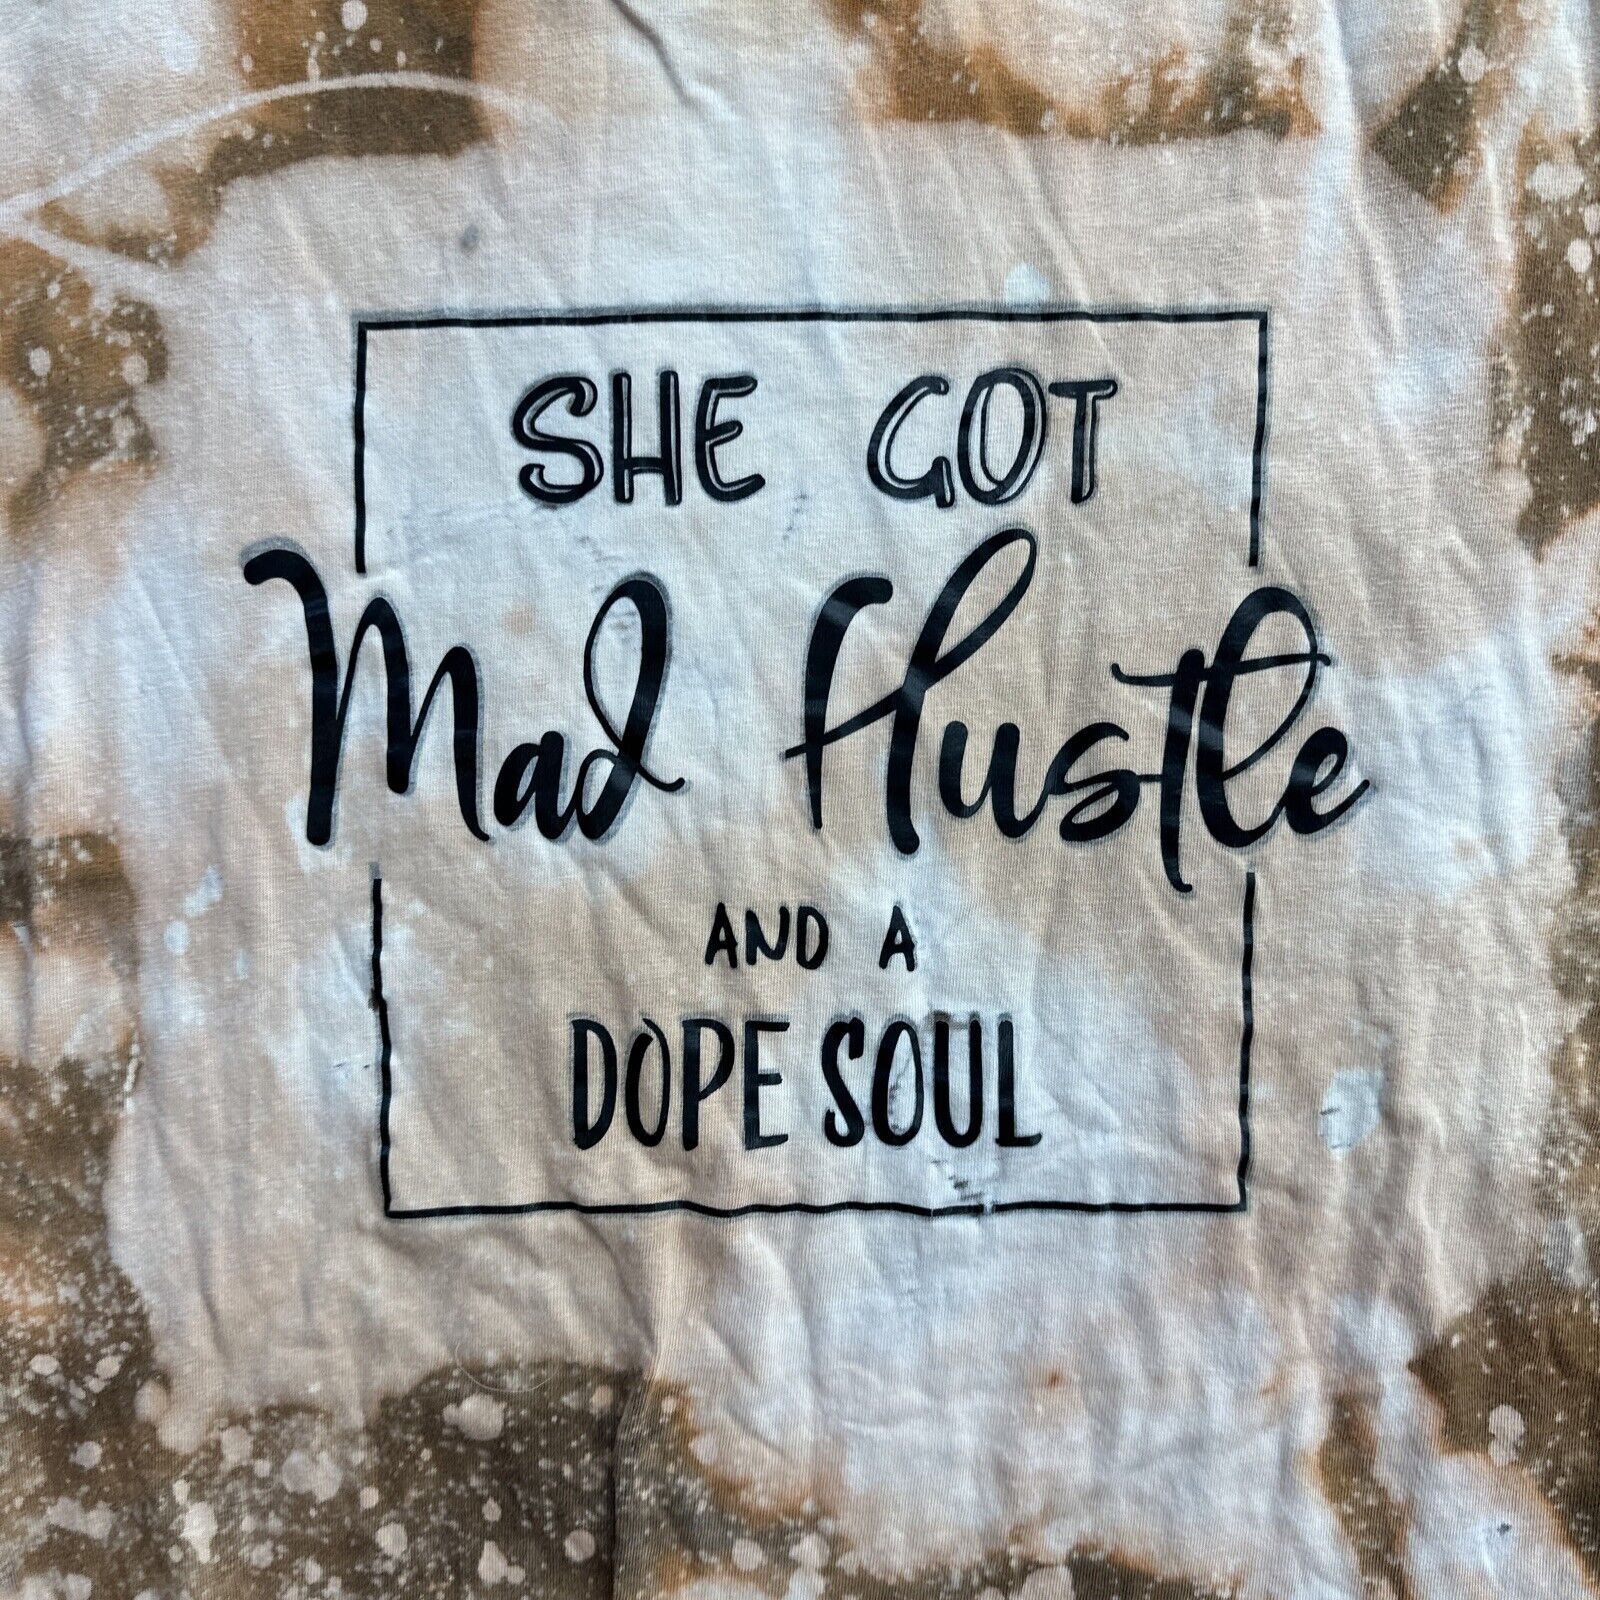 SHE GOT
Mad Hustle
AND A
DOPE SOUL